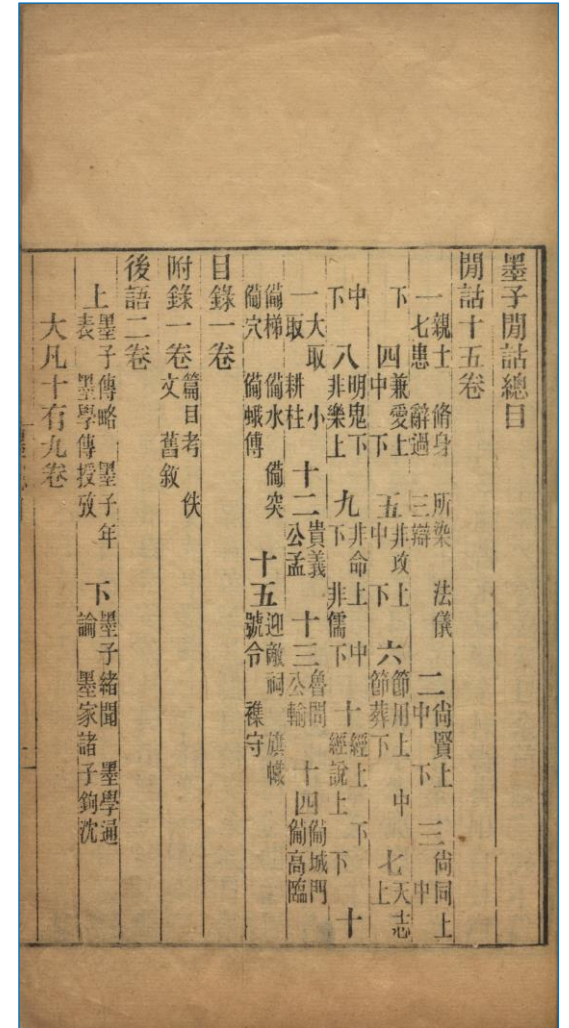 墨子閒詁總目
閒詁十五卷
一親士 脩身 所染 法儀 七患 辭過 三辯 二尚賢上 中 下 三尚同上 中
下 四兼愛上 中 下 五非攻上 中 下 六節用上 中 節葬下 七天志上
中 下 八明鬼下 非樂上 九非命上 中 下 非儒下 十經上 下 經說上 下 十
一大取 小取 耕柱 十二貴義 公孟 十三魯問 公輸 十四備城門 備高臨
備梯 備水 備突 備穴 備蛾傅 十五迎敵祠 旗幟 號令 襍守
目錄一卷
附錄一卷篇目考 佚文 舊敘
後語二卷
上墨子傳略 墨子年表 墨學傳授攷 下墨子緒聞 墨學通論 墨家諸子鉤沈
大凡十有九卷